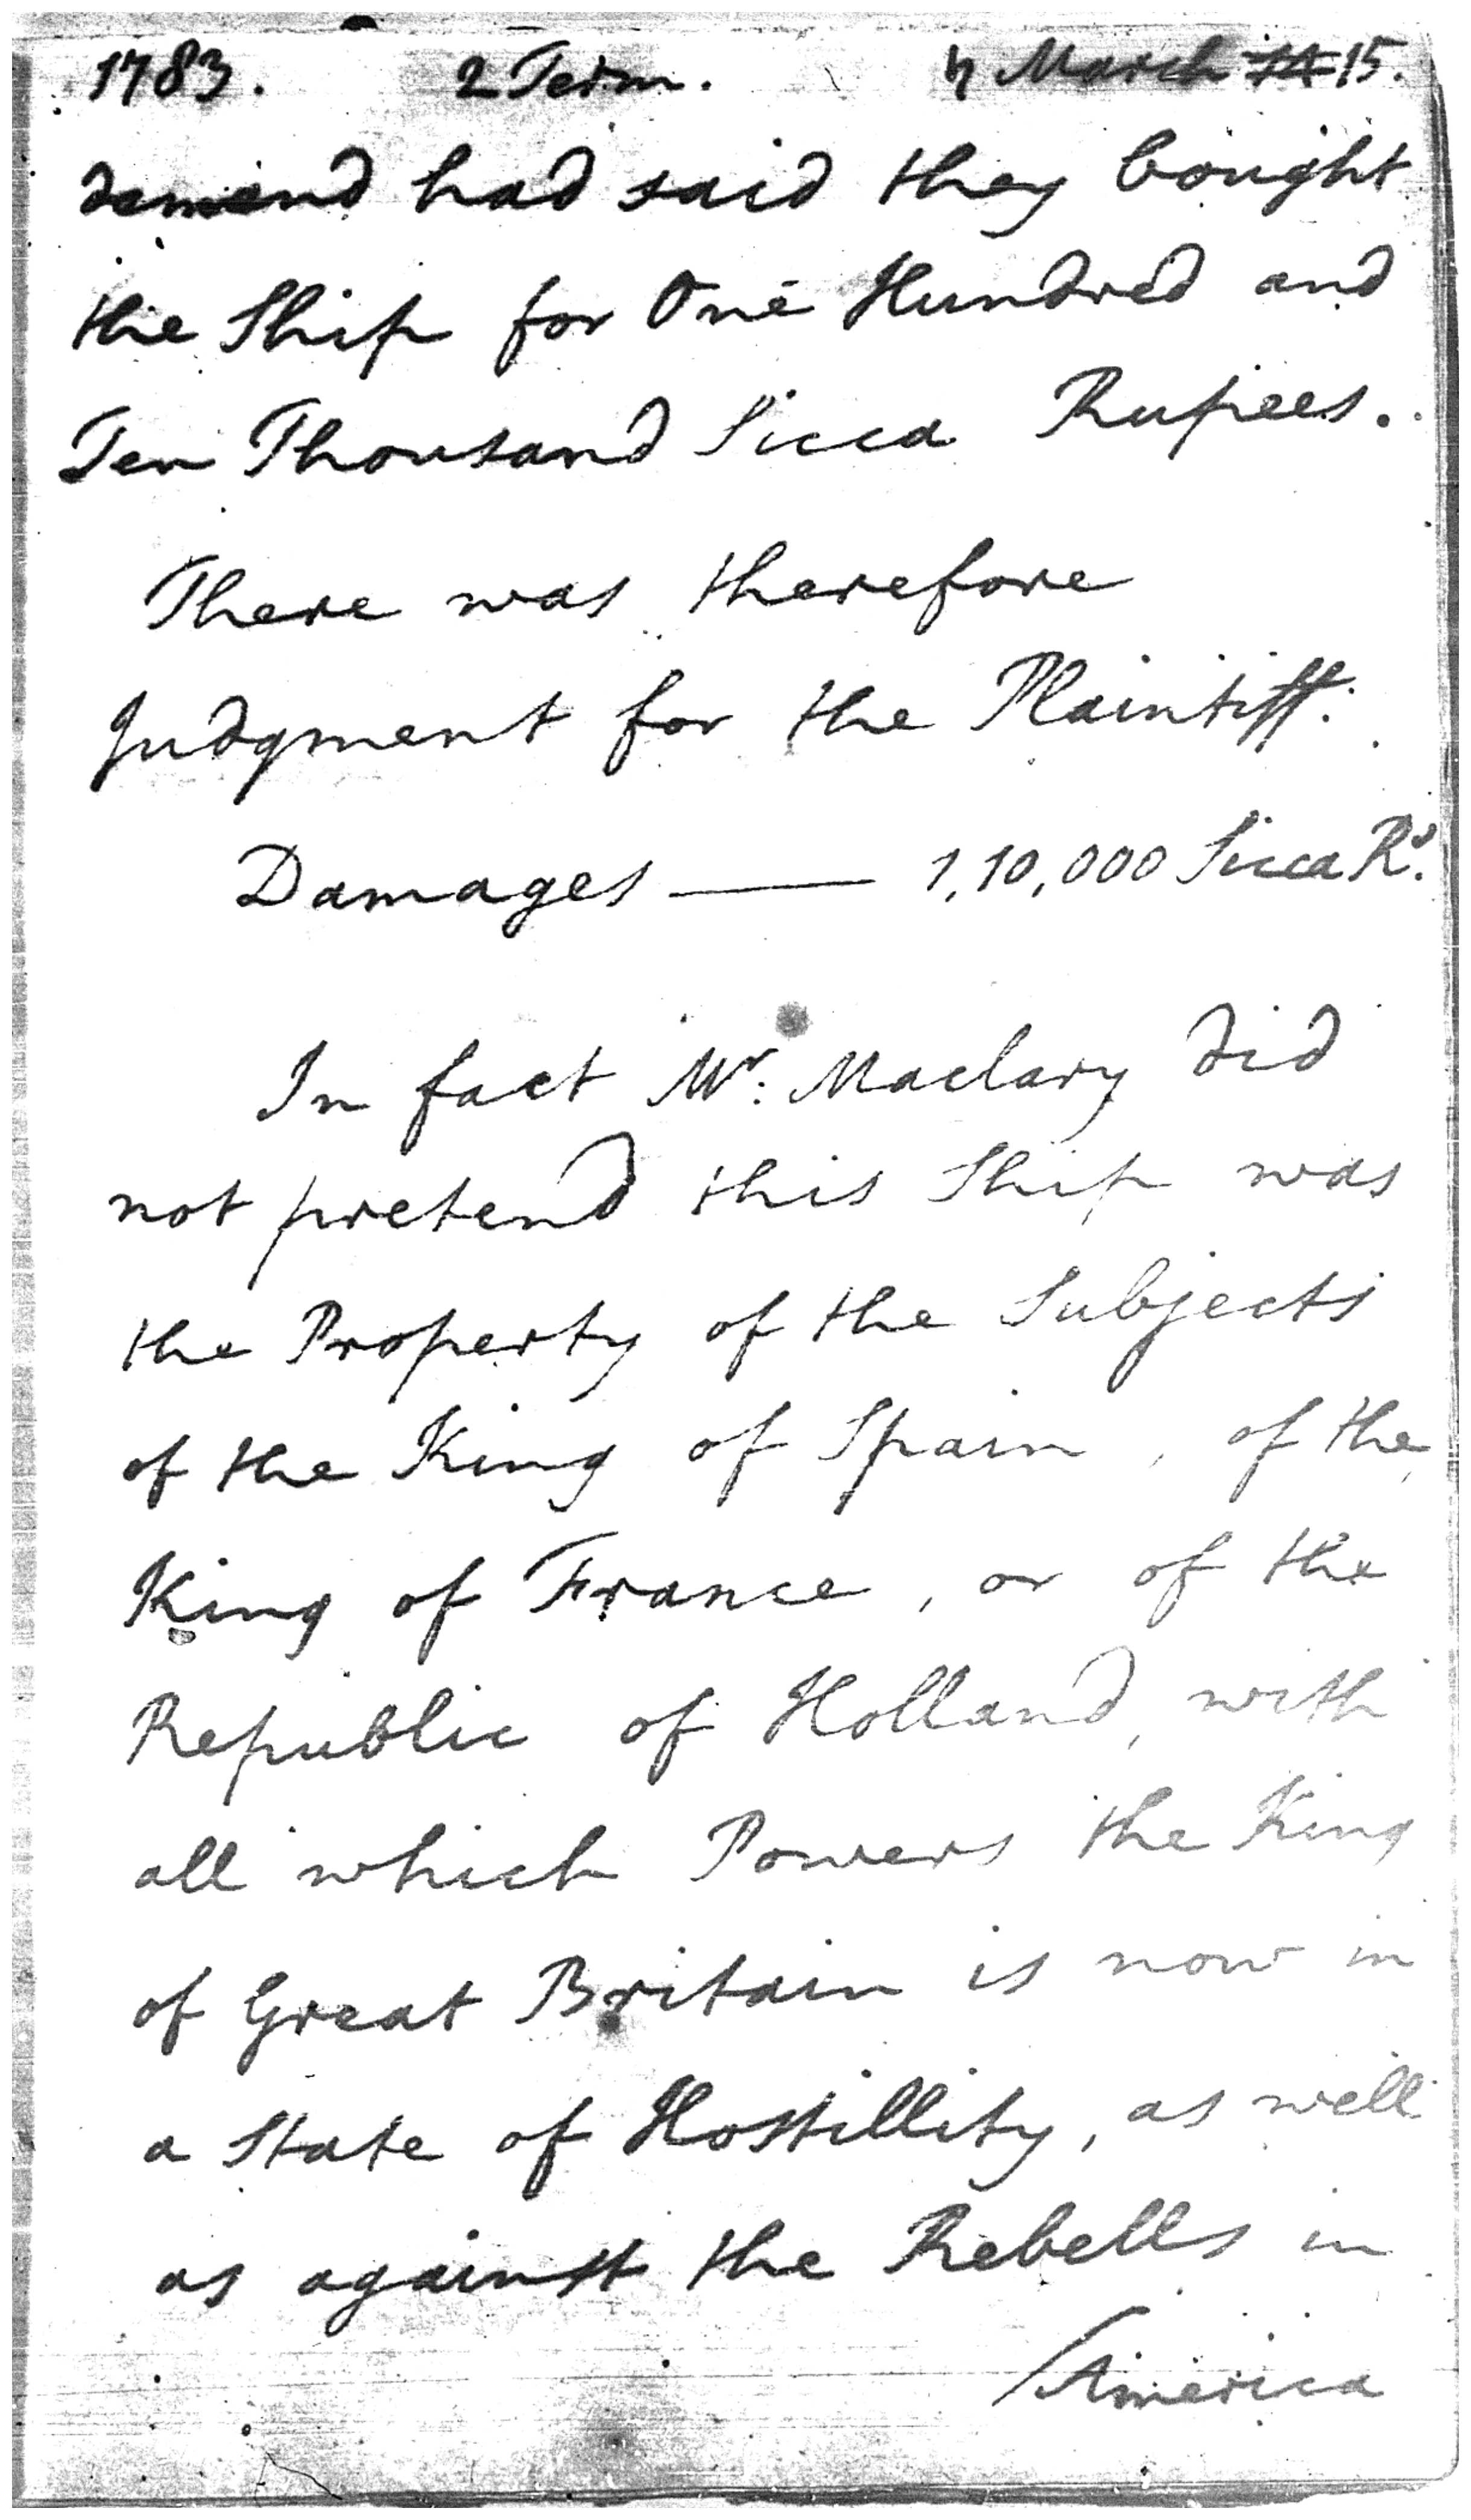 1783. 2 Term. ♄ March 14 15.
demand had said they bought
the Ship for One Hundred and
Ten Thousand Sicca Rupees.
There was therefore
Judgment for the Plaintiff.
Damages — 1,10,000 Sicca Rs.
In fact Mr: Maclary did
not pretend this Ship was
the Property of the Subjects
of the King of Spain, of the
King of France, or of the
Republic of Holland, with
all which Powers the King
of Great Britain is now in
a State of Hostillity, as well
as against the Rebells in
America